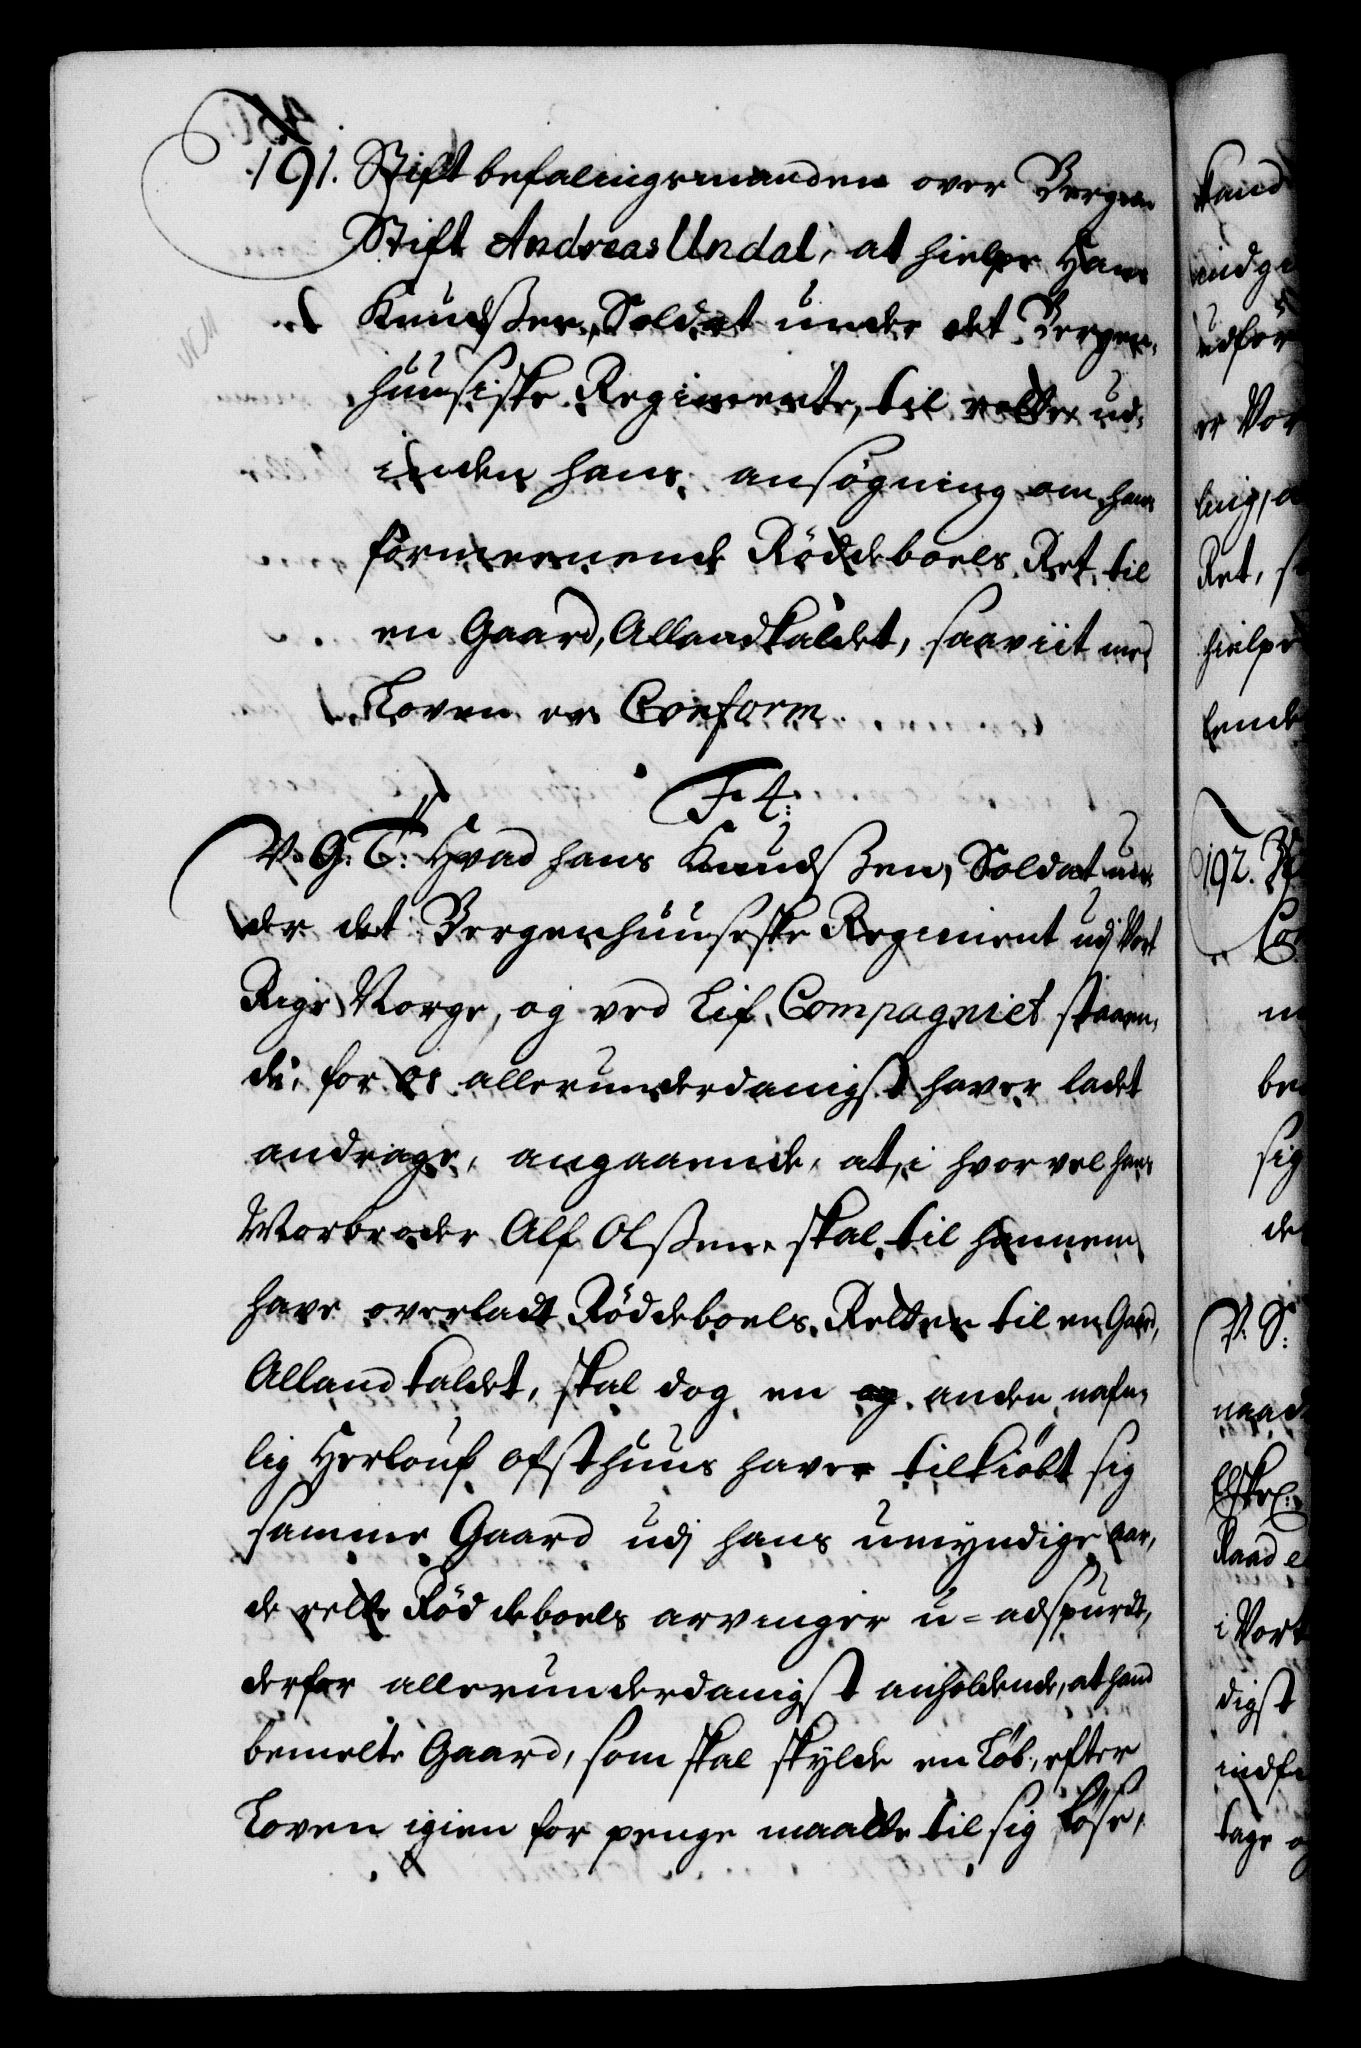 191. Stiftbefalingsmanden over Bergens
Stift Andreas Undal, at hielpe Hans
Knudsßen, Soldat under det Bergen-
huusiske Regimente, til rette ud-
inden hans ansøgning om hans
formeenende Röddeboels Ret til
en Gaard, Alland kaldet, saaviit med
Loven er Conform.
F 4:
V. G. T: Hvad Hans Knudsßen, Soldat un-
der det Bergenhuuseske Regiment udj Vort
Rige Norge, og ved Lif Compagniet staaen-
de, for os allerunderdanigst haver ladet
andrage, angaaende, at, i hvorvel hans
Morbroder Alf Olsßen skal til hannem
have overladt Röddeboels Retten til en Gaard,
Alland kaldet, skal dog en anden nafn-
lig Herlouf Ofsthuus haver tilkiöbt sig
samme Gaard udj hans umyndige Aar,
de rette Röddeboels arvinger u-adspurdt,
derfor allerunderdanigst anholdende, at hand
bemelte Gaard, som skal skylde en Löb, efter
Loven igien for penge maatte til sig löse,